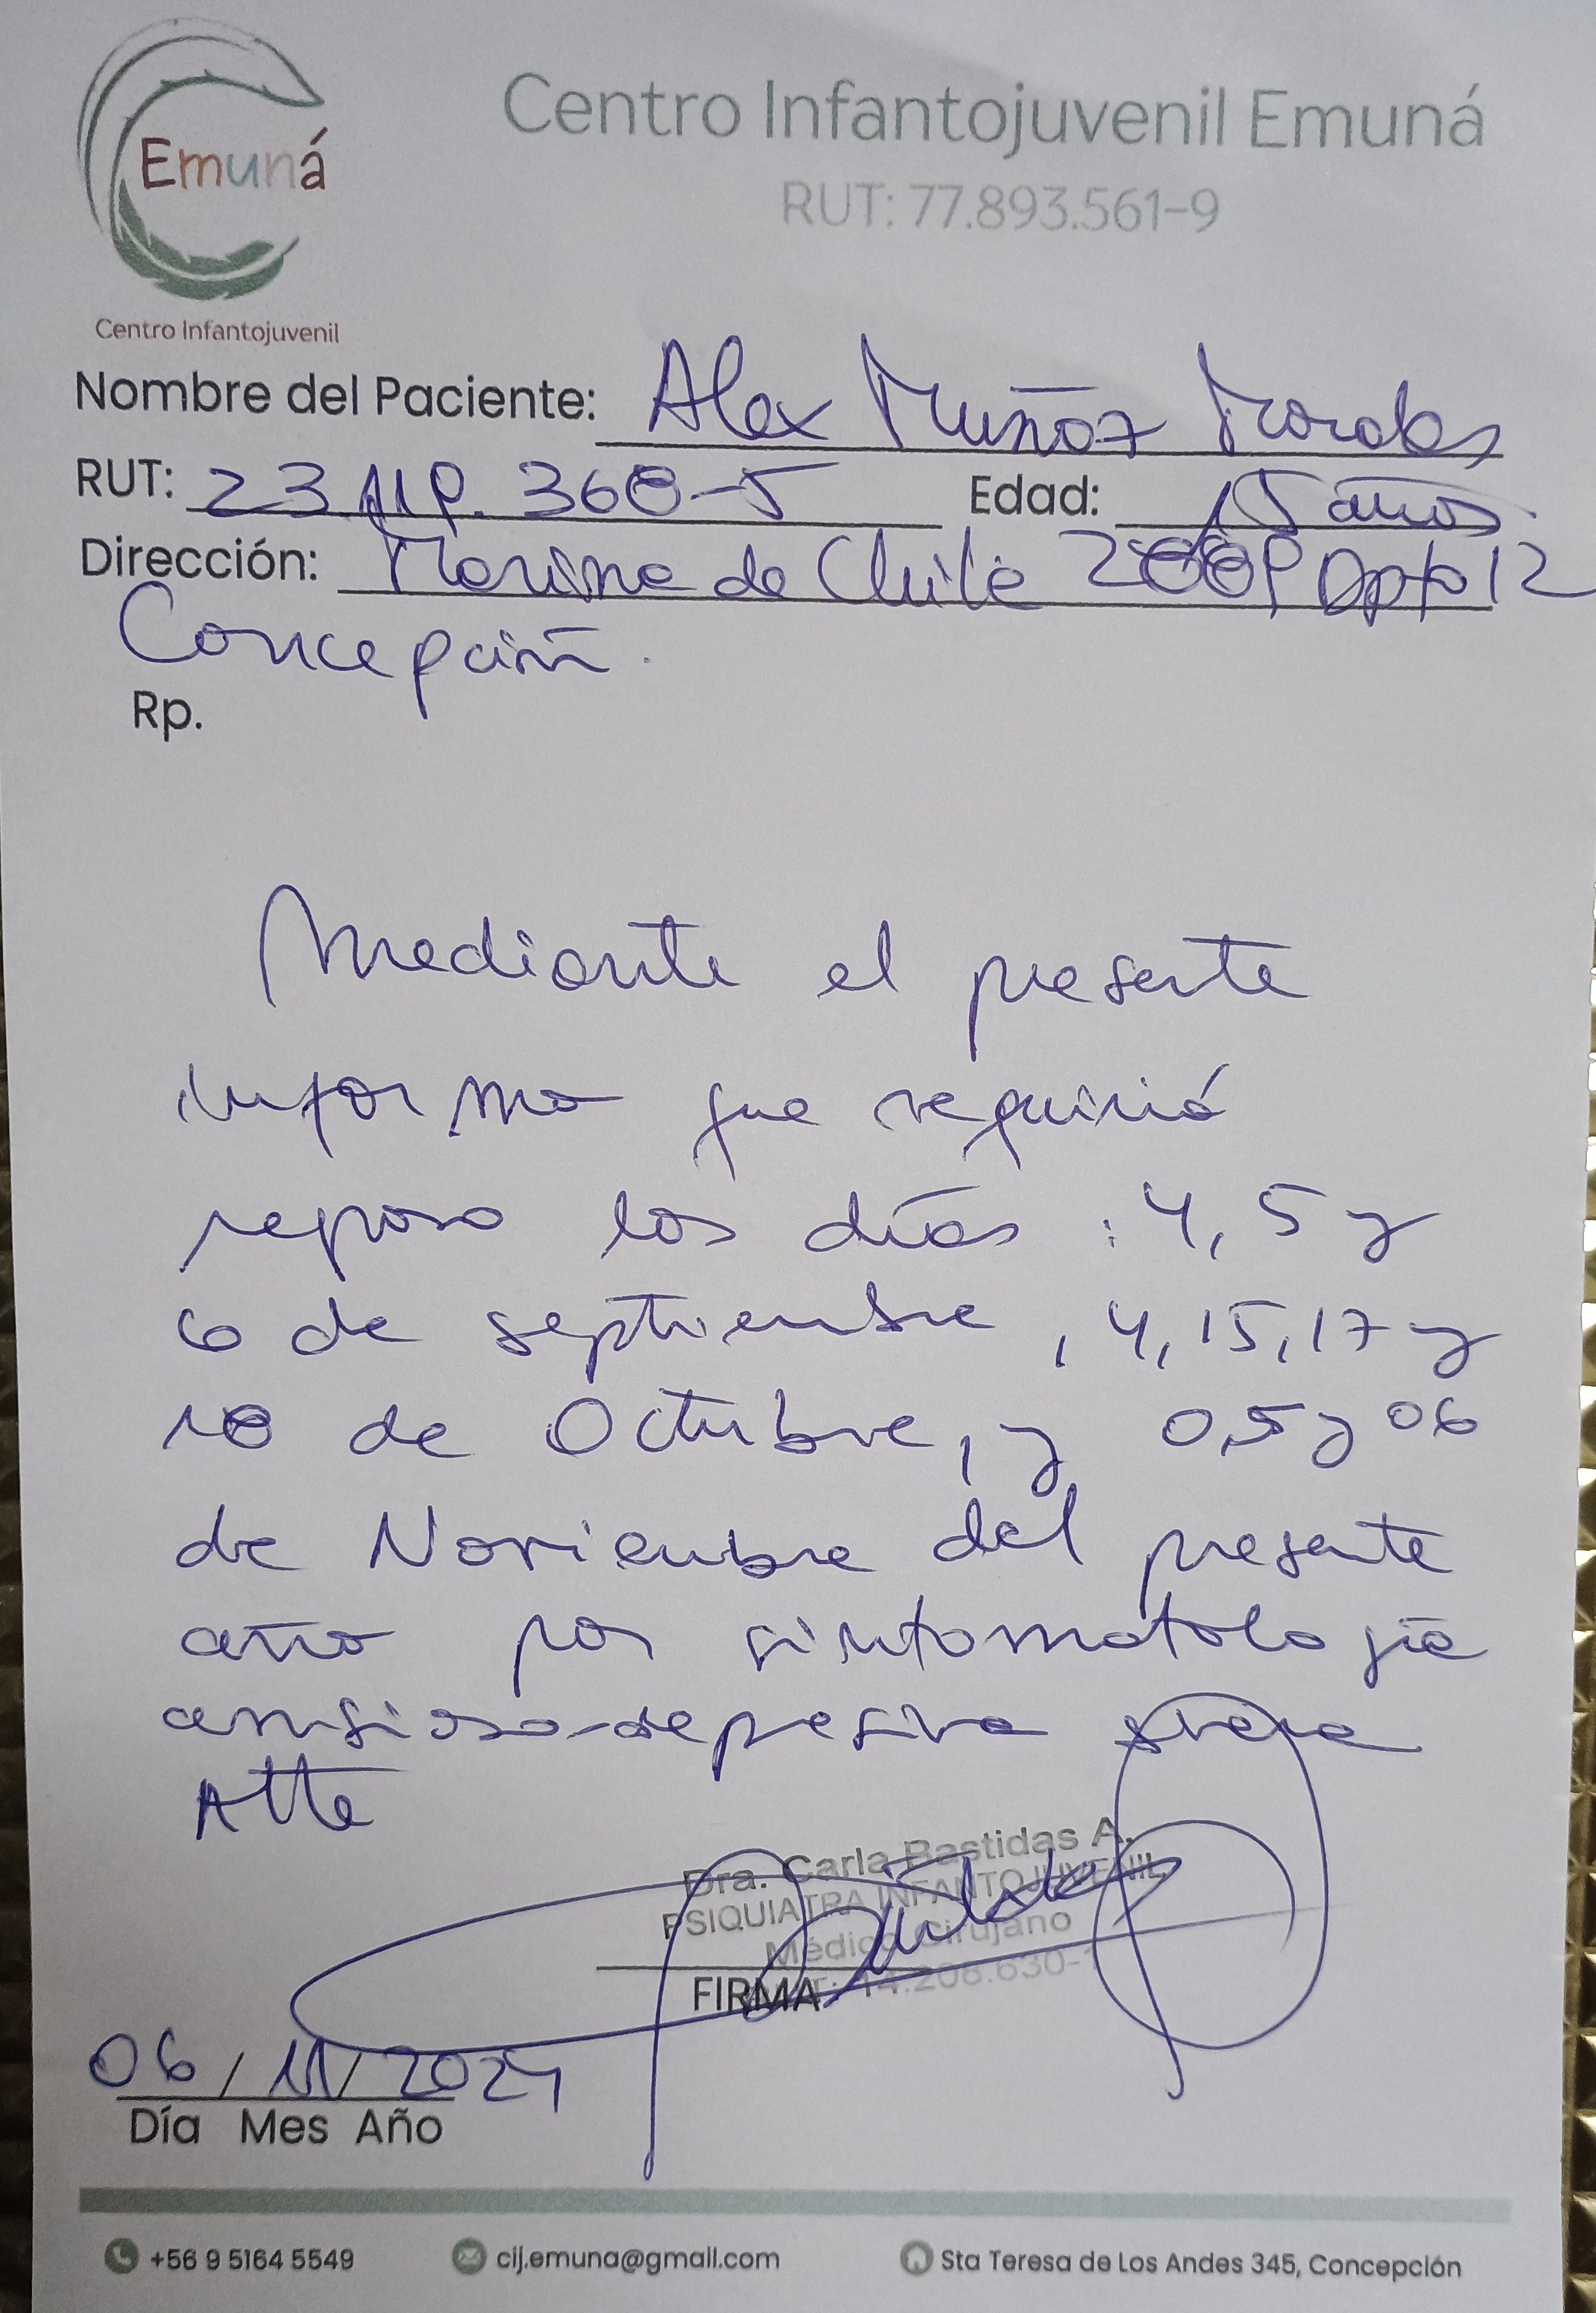 Emuná
Centro Infantojuvenil
Centro Infantojuvenil Emuná
RUT: 77.893.561-9
Nombre del Paciente: Alex Muñoz Morales
RUT: 23.119.368-5 Edad: 15 años
Dirección: Marina de Chile Dpto 12
Concepción.
Rp.
Mediante el presente
informo que requirió
reposo los días : 4, 5 y
6 de septiembre, 4, 15, 17 y
18 de Octubre, y 05 y 06
de Noviembre del presente
año por sintomatología
ansioso-depresiva severa
Atte
Dra. Carla Bastidas A.
PSIQUIATRA INFANTOJUVENIL
Médico Cirujano
14.208.630-
FIRMA
06 / 11 / 2024
Día Mes Año
+56 9 5164 5549 cij.emuna@gmail.com Sta Teresa de Los Andes 345, Concepción